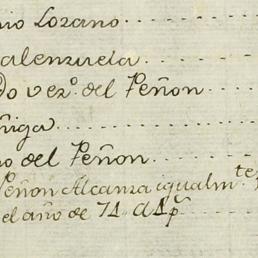 nio Lozano
alenzuela
do vez.º del Peñon
ñiga
no del Peñon
Peñon Alcanza igualm.te
el año de 71 d